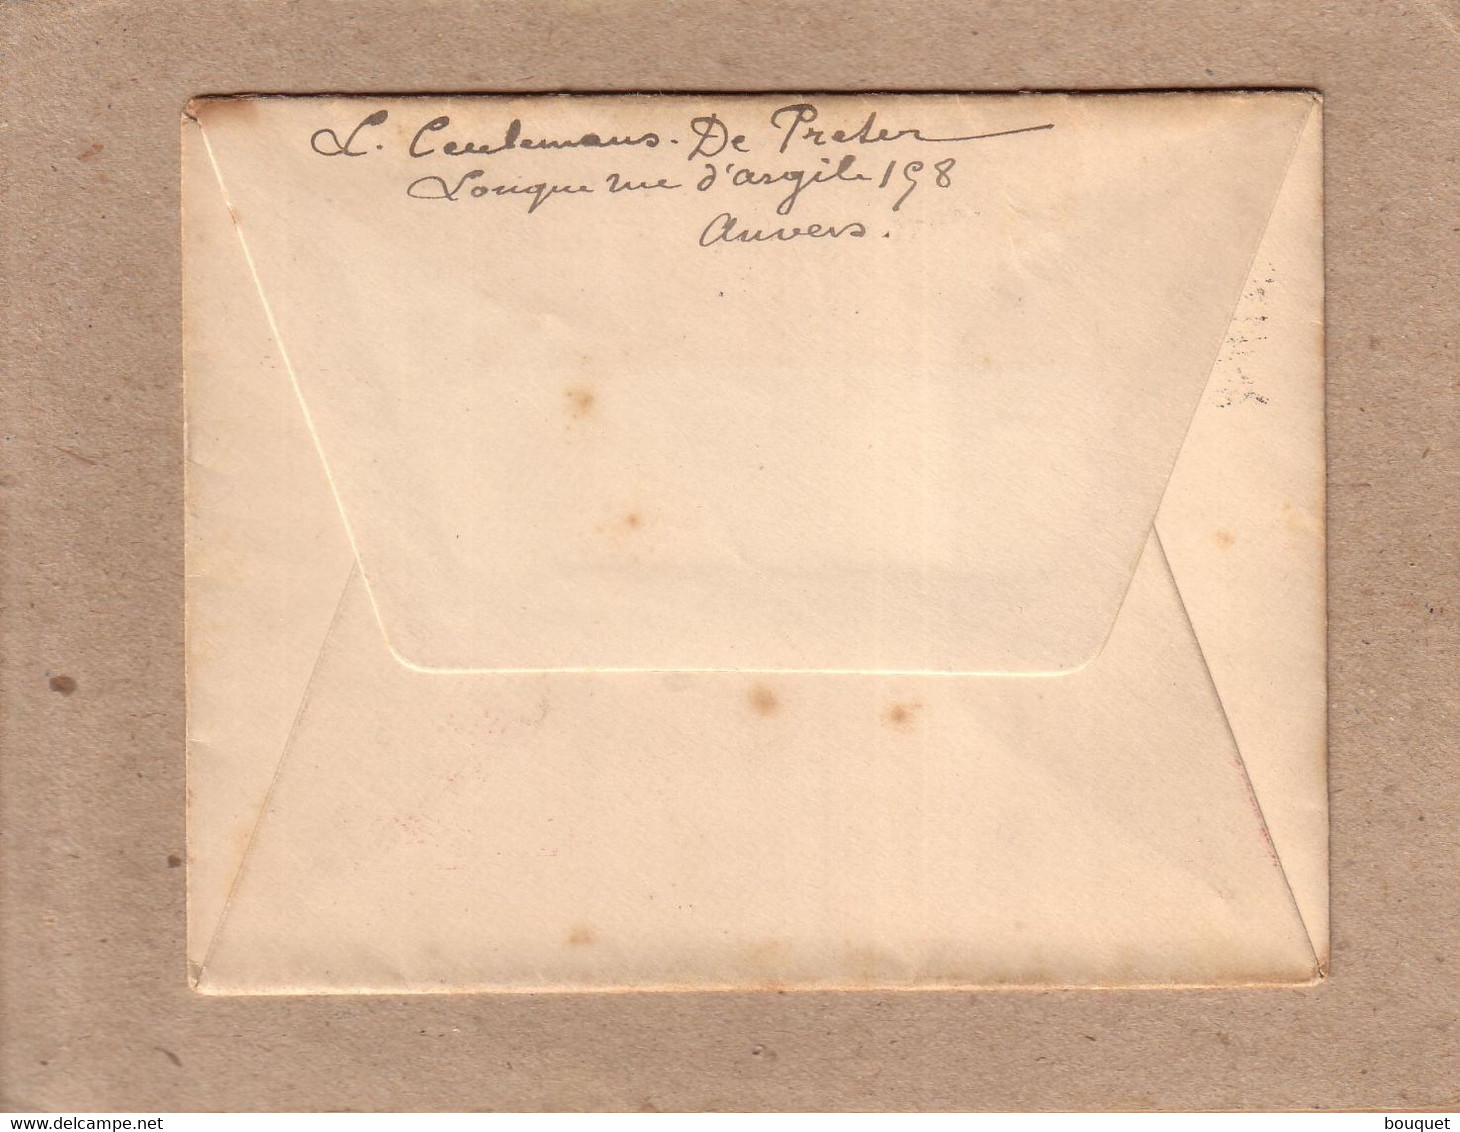 L. Ceulemans. De Preter
Longue rue d'argile 198
Anvers.
bouquet
www.delcampe.net